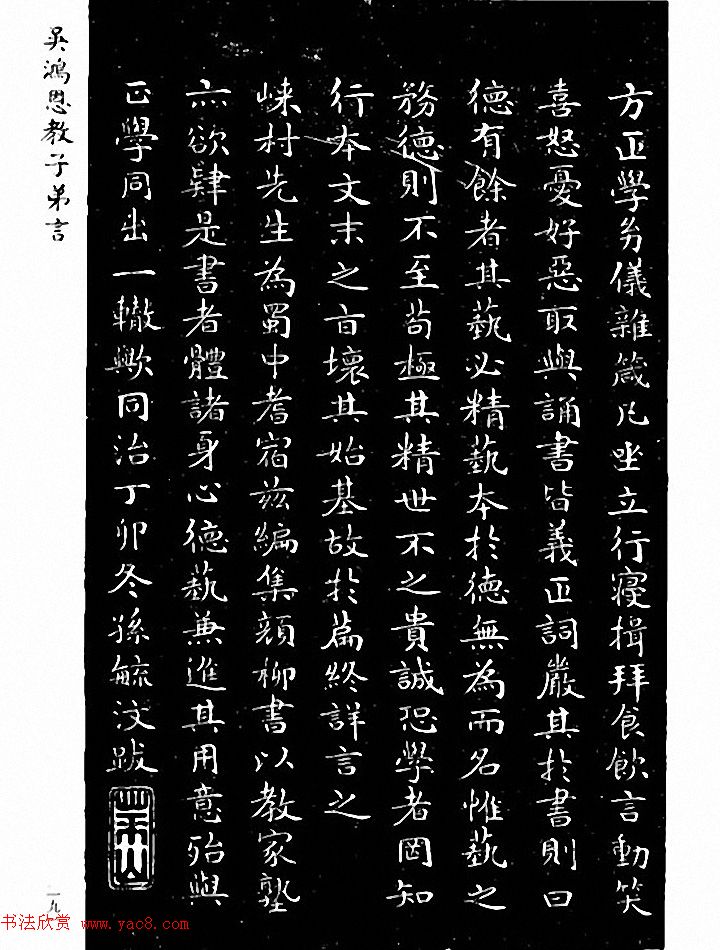 吴鸿恩教子弟言
方正學幼儀雜箴凡坐立行寢揖拜食飲言動笑
喜怒憂好惡取與誦書皆義正詞嚴其於書則曰
德有餘者其藝必精藝本於德無為而名惟藝之
務德則不至苟極其精世不之貴誠恐學者罔知
行本文末之旨壞其始基故於篇終詳言之
崍村先生為蜀中耆宿兹編集顏柳書以教家塾
亦欲肄是書者體諸身心德藝兼進其用意殆與
正學同出一轍歟同治丁卯冬孫毓汶跋
一九
书法欣赏 www.yac8.com